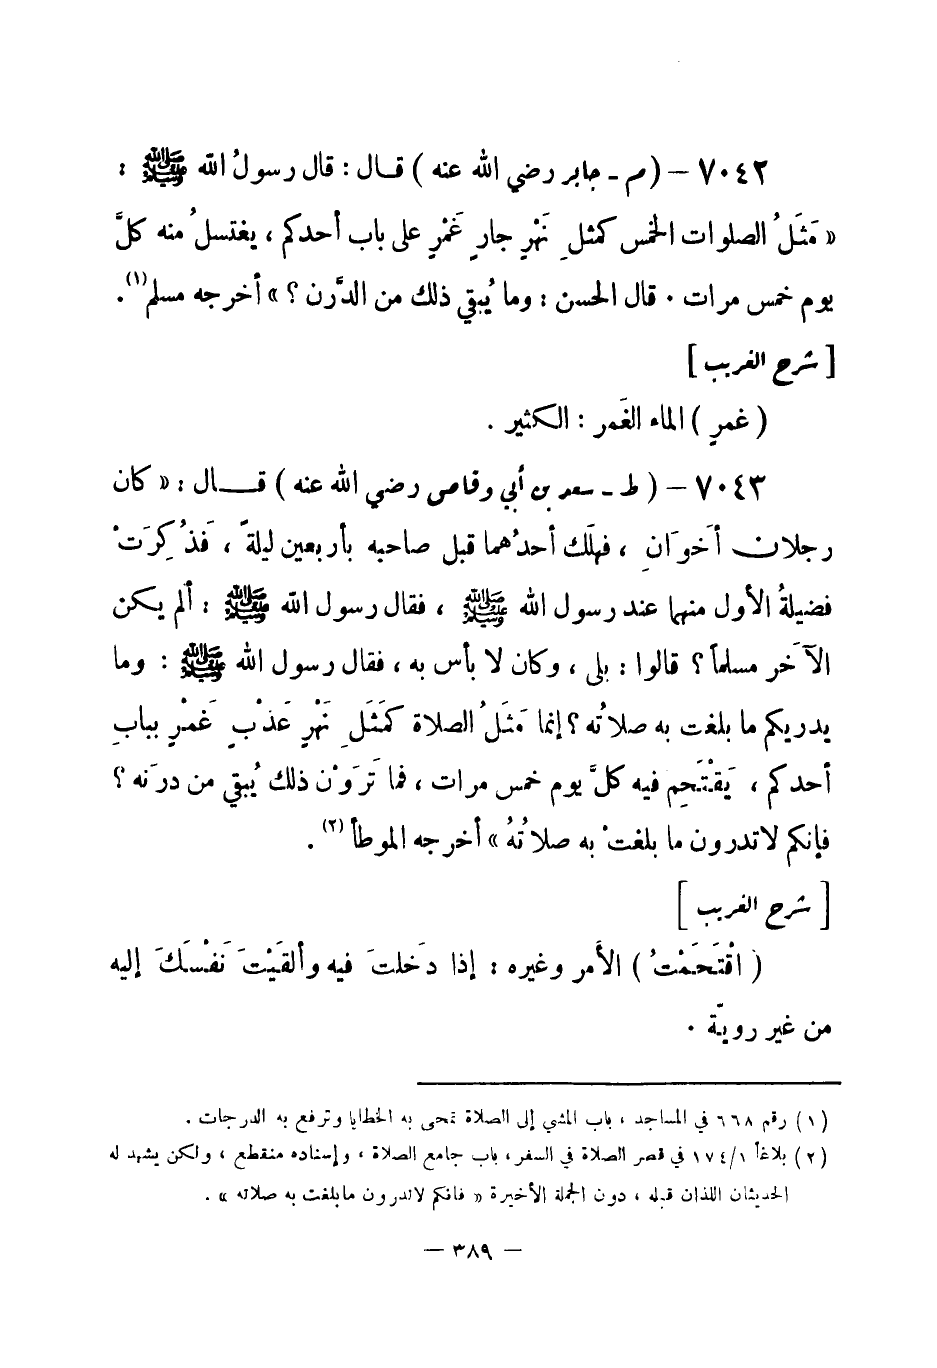 ٧٠٤٢ – ( م - جابر رضي الله عنه ) قـال : قال رسولُ الله ﷺ :
« مَثَلُ الصلوات الخمس كمثلِ نَهْرٍ جارٍ غَمْرٍ على باب أحدكم ، يغتسلُ منه كلَّ
يوم خمس مرات . قال الحسن : وما يُبقي ذلك من الدَّرن ؟ » أخرجه مسلم (١) .
[ شرح الغريب ]
( غمرٍ ) الماء الغَمر : الكثير .
٧٠٤٣ – ( ط - سعد بن أبي وقاص رضي الله عنه ) قــال : « كان
رجلان أَخوَانِ ، فهلَك أحدُهما قبل صاحبه بأربعين ليلةً ، فذُكِرَتْ
فضيلةُ الأول منهما عند رسول الله ﷺ ، فقال رسول الله ﷺ : ألم يكن
الآخَر مسلماً ؟ قالوا : بلى ، وكان لا بأس به ، فقال رسول الله ﷺ : وما
يدريكم ما بلغت به صلاتُه ؟ إنما مَثَلُ الصلاة كَمَثَلِ نَهْرٍ عَذْبٍ غَمْرٍ ببابِ
أحدكم ، يَقْتَحِم فيه كلَّ يوم خمس مرات ، فما تَرَوْن ذلك يُبقي من درَنه ؟
فإنكم لاتدرون ما بلغتْ به صلاتُهُ » أخرجه الموطأ (٢) .
[ شرح الغريب ]
( اقْتَحَمْتُ ) الأَمر وغيره : إذا دَخلتَ فيه وألقَيْتَ نَفْسَكَ إليه
من غير رويّة .
(١) رقم ٦٦٨ في المساجد ، باب المشي إلى الصلاة تمحى به الخطايا وترفع به الدرجات .
(٢) بلاغاً ١٧٤/١ في قصر الصلاة في السفر ، باب جامع الصلاة ، وإسناده منقطع ، ولكن يشهد له
الحديثان اللذان قبله ، دون الجملة الأخيرة « فانكم لاتدرون مابلغت به صلاته » .
— ٣٨٩ —